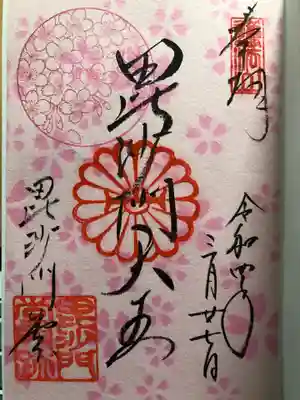 奉拝
令和四年
三月廿七日
毘沙門天王
毘沙門堂
毘沙門
堂門跡